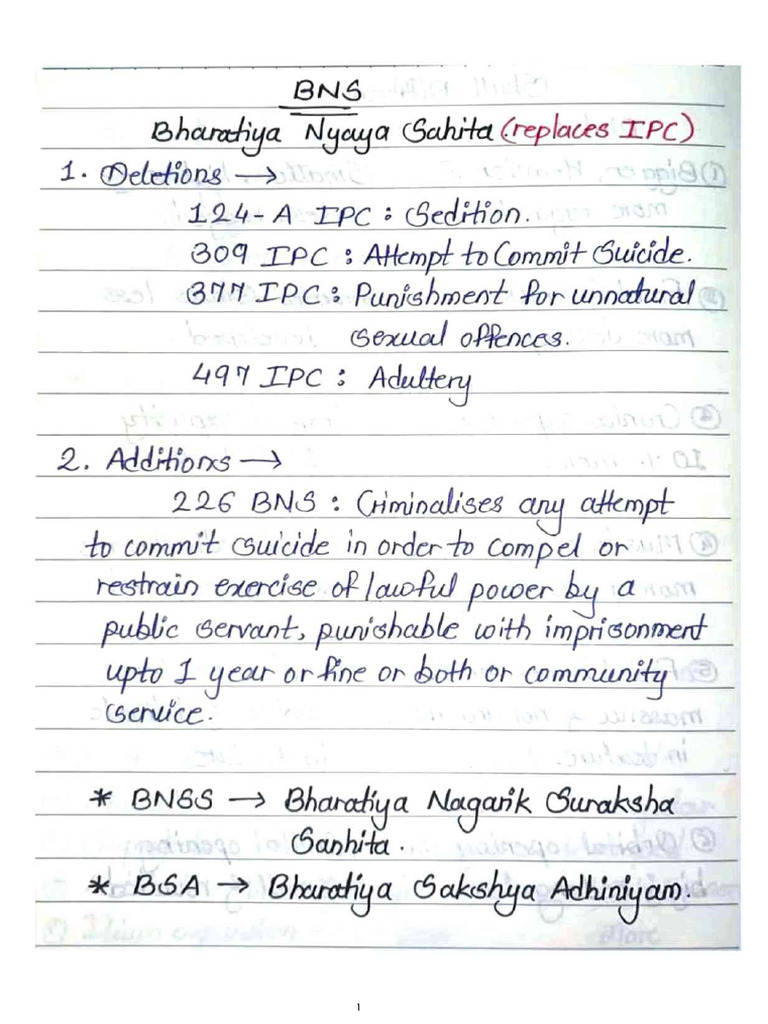 BNS
Bharatiya Nyaya Sahita (replaces IPC)
1. Deletions →
124-A IPC : Sedition.
309 IPC : Attempt to Commit Suicide.
377 IPC : Punishment for unnatural
sexual offences.
497 IPC : Adultery
2. Additions →
226 BNS : Criminalises any attempt
to commit suicide in order to compel or
restrain exercise of lawful power by a
public servant, punishable with imprisonment
upto 1 year or fine or both or community
service.
* BNSS → Bharatiya Nagarik Suraksha
Sanhita.
* BSA → Bharatiya Sakshya Adhiniyam.
1